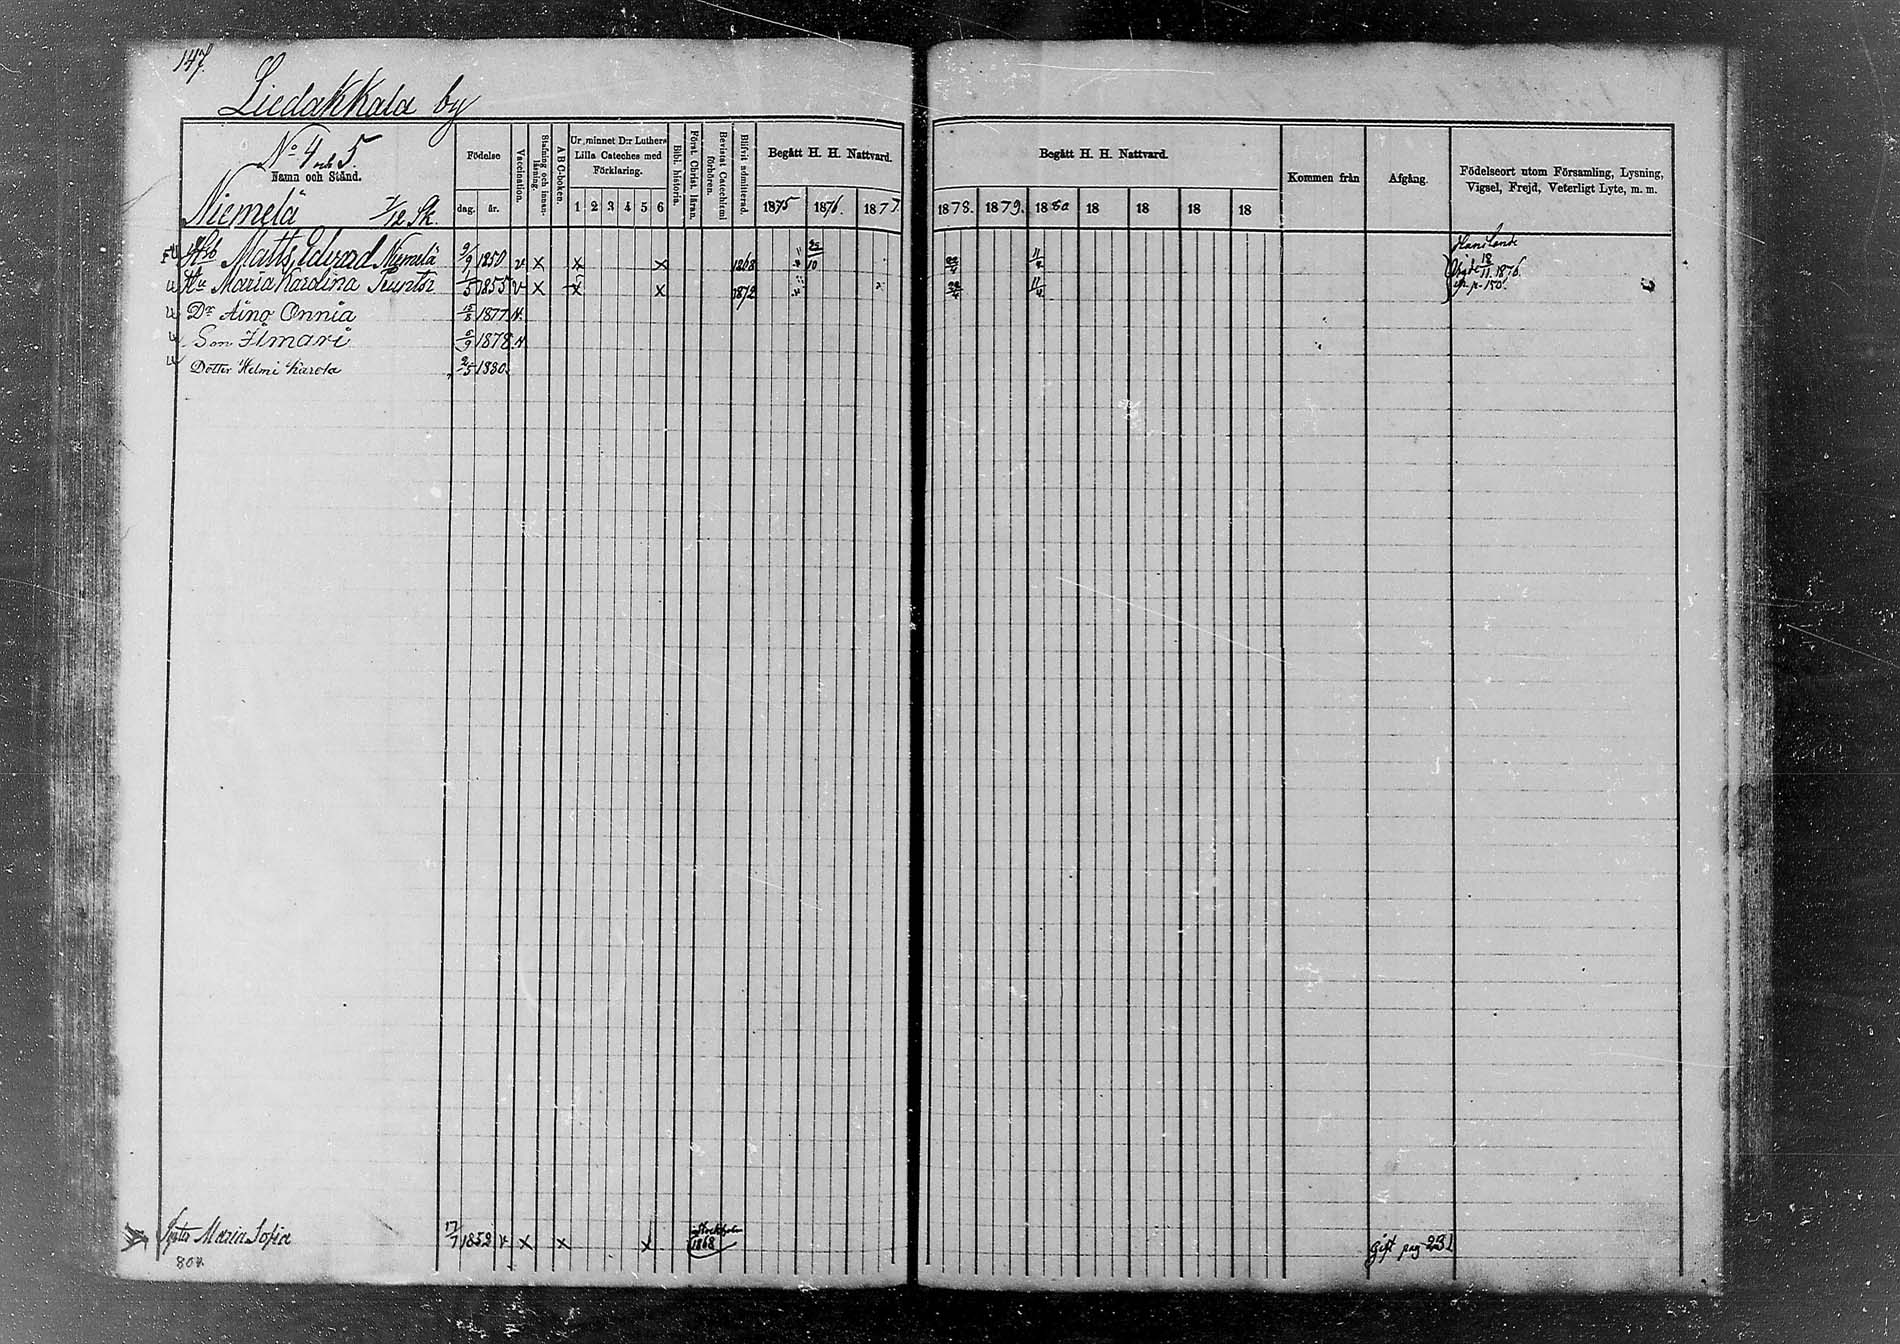 147.
Liedakkala by
No 4 och 5.
Namn och Stånd.
Niemelä 7/12 Sk.
Födelse
dag. år.
Vaccination.
Stafning och innan-läsning.
A B C-boken.
Ur minnet D:r Luthers Lilla Cateches med Förklaring.
1 2 3 4 5 6
Bibl. historia.
Först. Christ. läran.
Bevistat Catechismi förhören.
Blifvit admitterad.
Begått H. H. Nattvard.
1875 1876. 1877.
Begått H. H. Nattvard.
1878. 1879. 1880 18 18 18 18
Kommen från
Afgång.
Födelseort utom Församling, Lysning, Vigsel, Frejd, Veterligt Lyte, m. m.
Matts Edvard Niemelä 9/9 1850 v x x x 1868 25/10 22/4 11/4
Hu Maria Karolina Runtti 1/5 1855 v x x x 1872 22/4 11/4
18/11 1876
p. 150.
Dr Aino Onnia 15/8 1877 v.
Son Ilmari 6/9 1878 v
Dotter Helmi Karola 2/5 1880.
Maria Sofia 17/7 1852 v x x x Stockholm 1868 Gift pag 231
804.